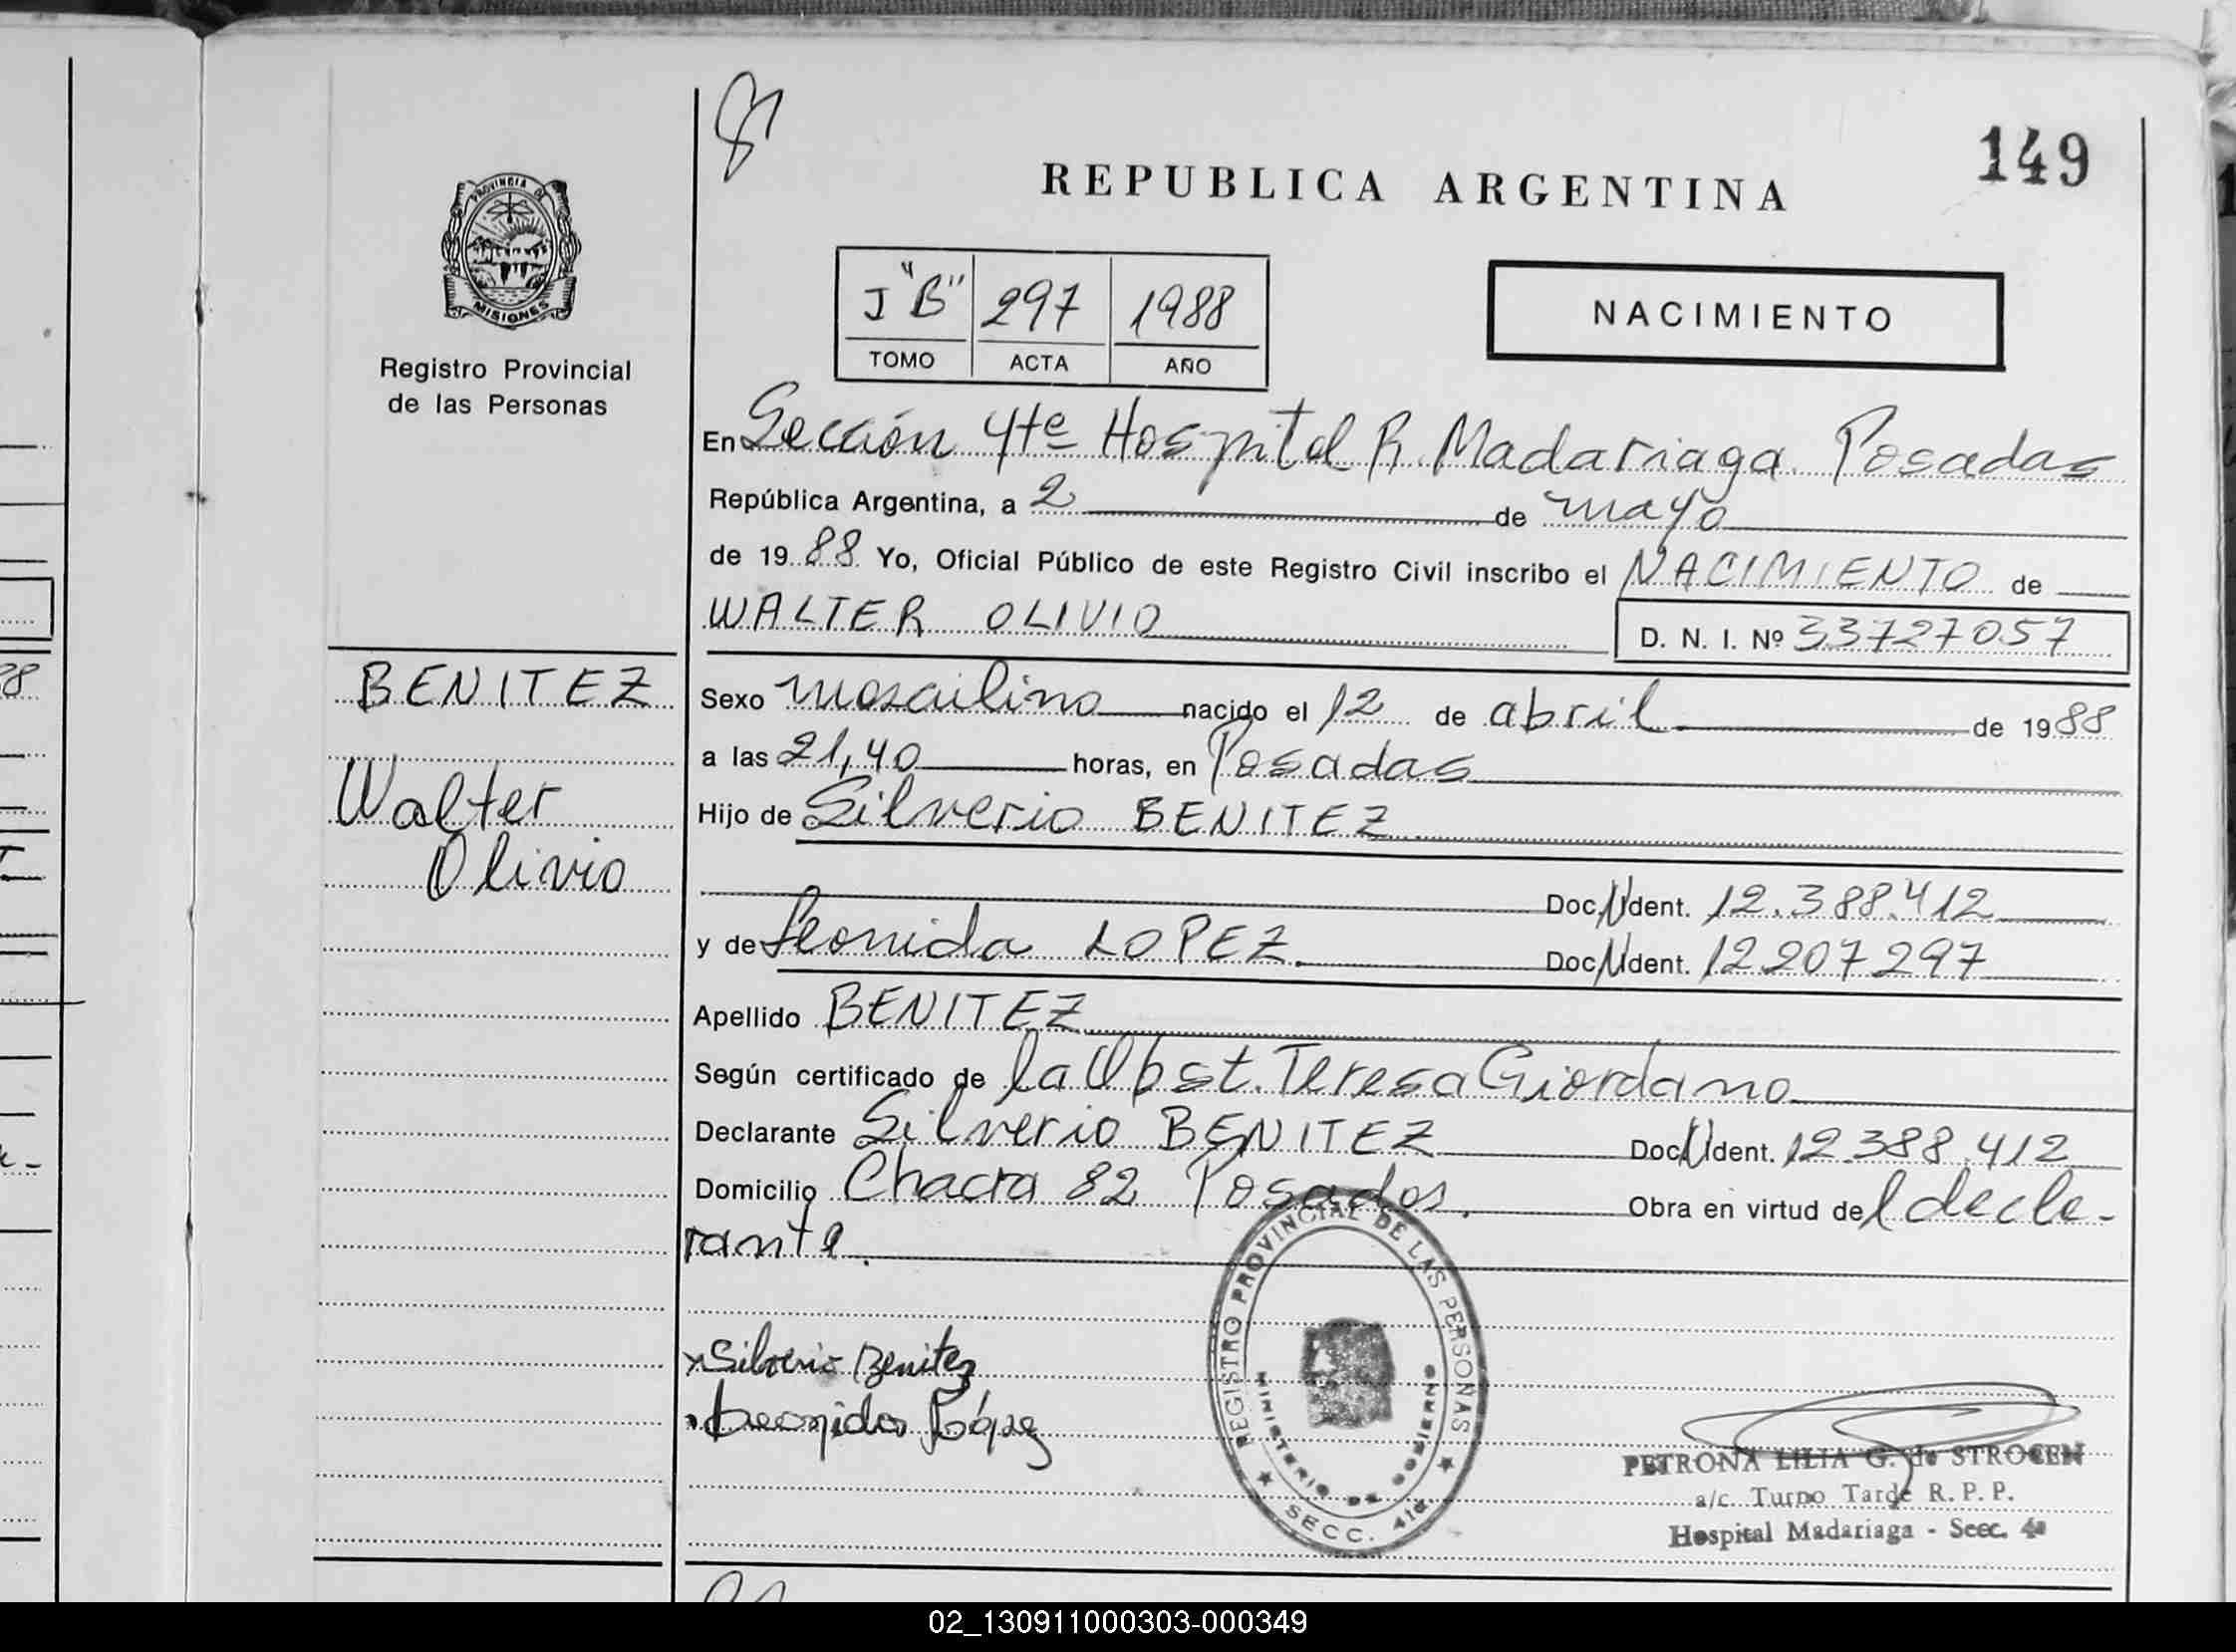 149
REPUBLICA ARGENTINA
PROVINCIA DE
MISIONES
Registro Provincial
de las Personas
J "B" 297 1988
TOMO ACTA AÑO
NACIMIENTO
En Sección 4ta Hospital R. Madariaga Posadas
República Argentina, a 2 de mayo
de 1988 Yo, Oficial Público de este Registro Civil inscribo el NACIMIENTO de
WALTER OLIVIO
D. N. I. Nº 33727057
BENITEZ
Walter
Olivio
Sexo masculino nacido el 12 de abril de 1988
a las 21,40 horas, en Posadas
Hijo de Silverio BENITEZ
Doc. Ident. 12.388.412
y de Leonida LOPEZ. Doc. Ident. 12207297
Apellido BENITEZ
Según certificado de la Obst. Teresa Giordano
Declarante Silverio BENITEZ Doc. Ident. 12.388.412
Domicilio Chacra 82 Posadas. Obra en virtud del decla-
rante.
x Silverio Benitez
Leonida López
REGISTRO PROVINCIAL DE LAS PERSONAS
MINISTERIO DE GOBIERNO
SECC. 4ta
PETRONA LILIA G. de STROCEN
a/c. Turno Tarde R. P. P.
Hospital Madariaga - Secc. 4a
02_130911000303-000349